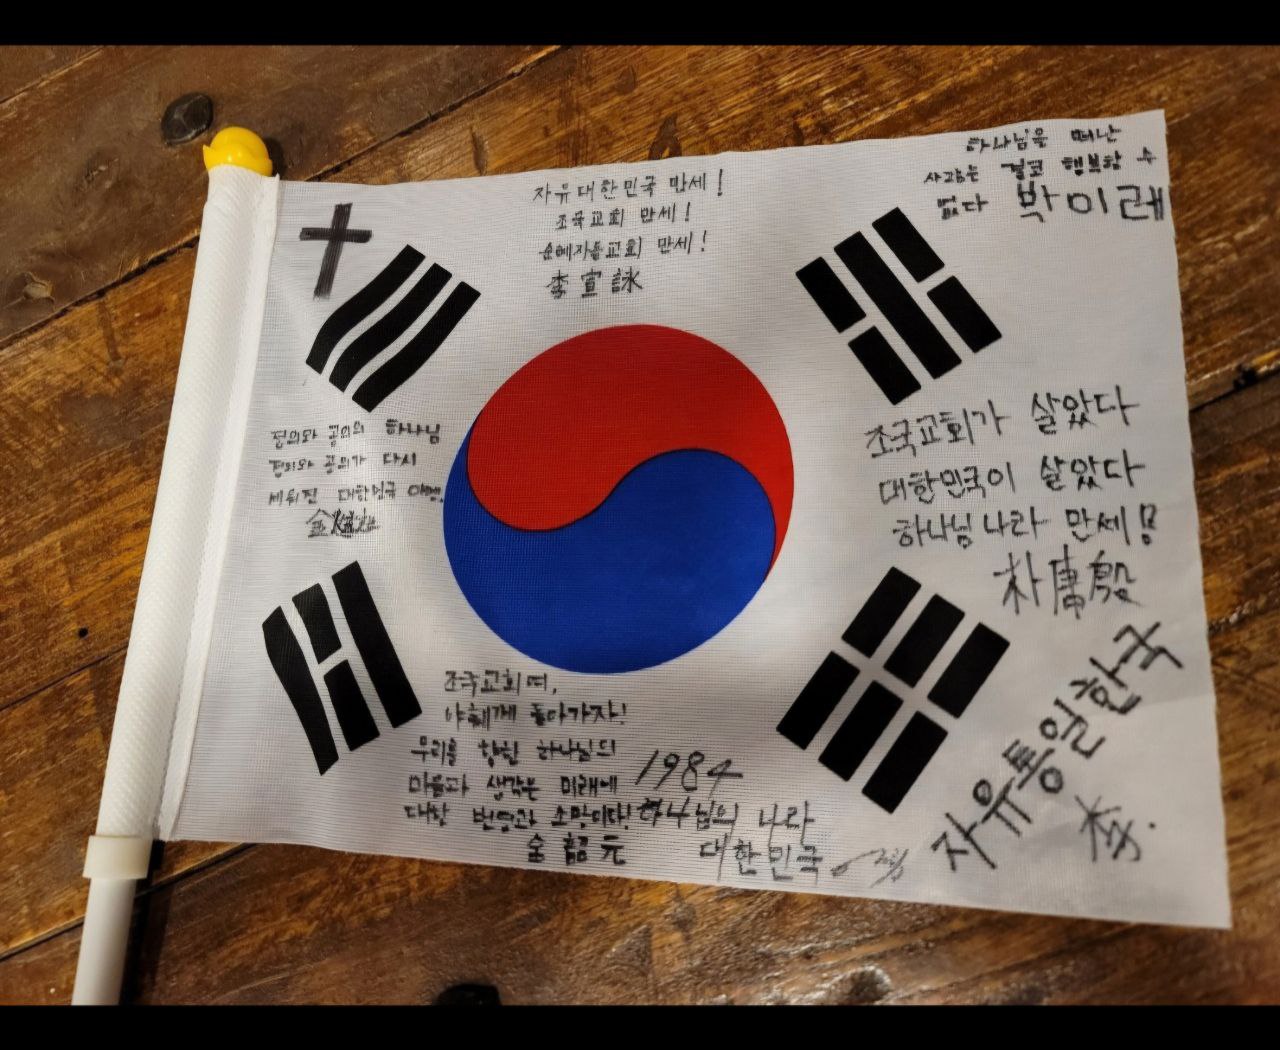 자유대한민국 만세!
조국교회 만세!
순혜자들교회 만세!
李宣詠
하나님을 떠난
사람은 결코 행복할 수
없다 박미레
정의와 공의의 하나님
정의와 공의가 다시
세워진 대한민국 아멘.
조국교회가 살았다
대한민국이 살았다
하나님 나라 만세!
朴庸殷
조국교회여,
야훼께 돌아가자!
우리를 향한 하나님의
마음과 생각은 미래에
대한 번영과 소망이다!
金韶元
1984
하나님의 나라
대한민국
자유통일한국
李.